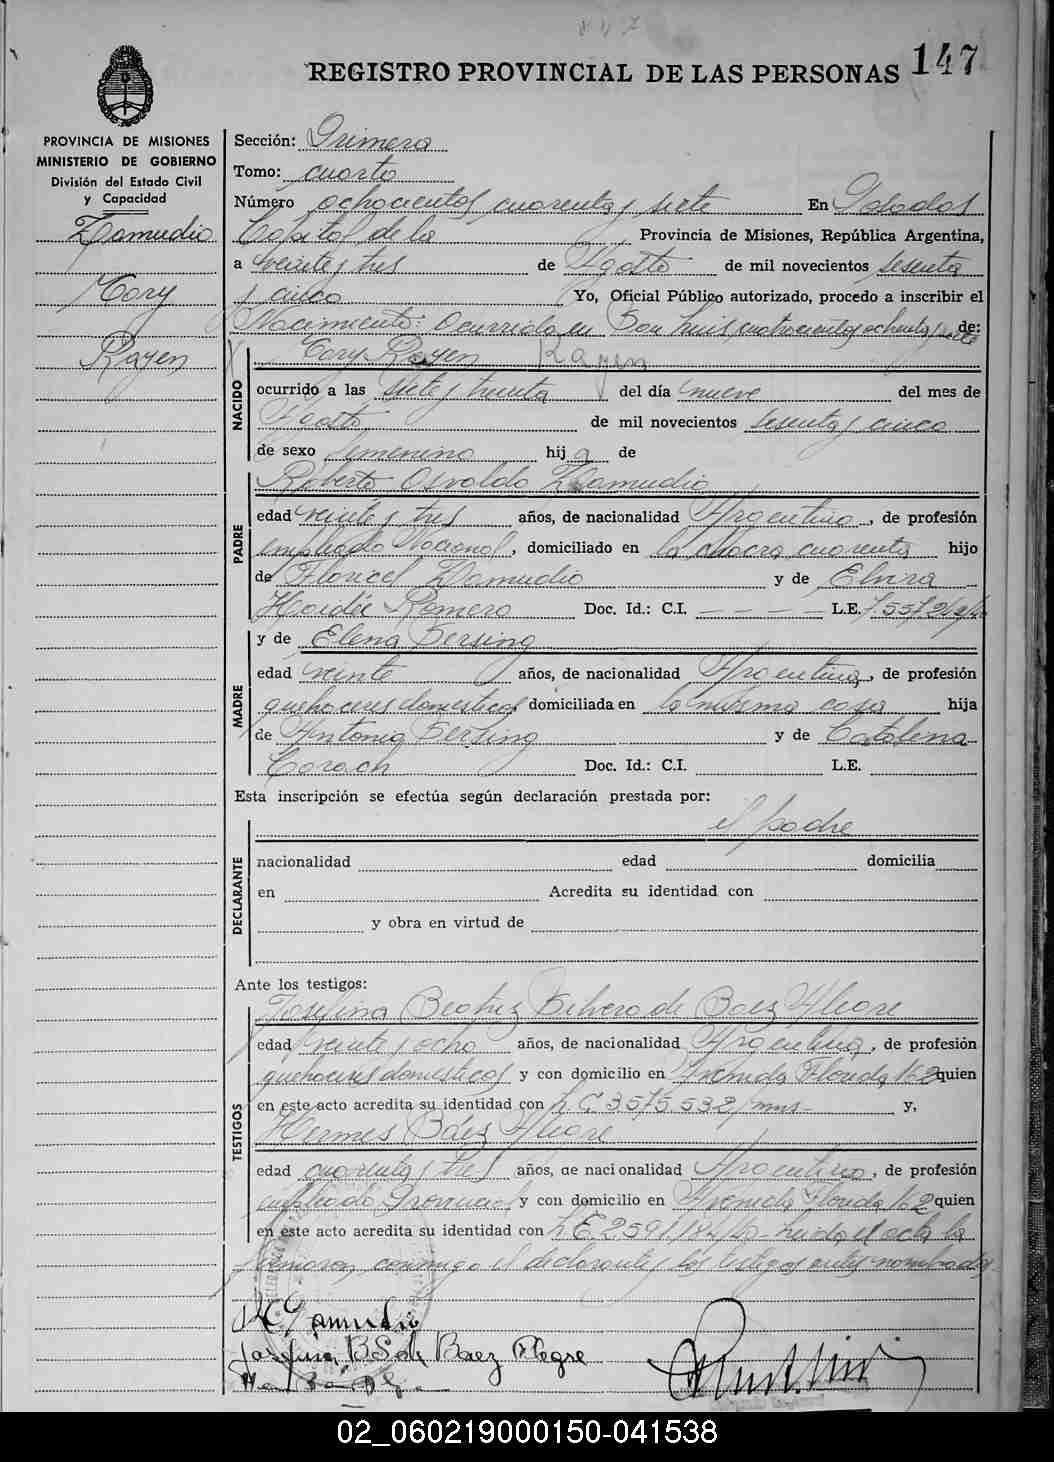 847
REGISTRO PROVINCIAL DE LAS PERSONAS 147
PROVINCIA DE MISIONES
MINISTERIO DE GOBIERNO
División del Estado Civil
y Capacidad
Zamudio
Cory
Rayen
Sección: Primera
Tomo: cuarto
Número ochocientos cuarenta y siete En Posadas
Capital de la Provincia de Misiones, República Argentina,
a veinte y tres de Agosto de mil novecientos sesenta
y cinco Yo, Oficial Público autorizado, procedo a inscribir el
Nacimiento: Ocurrido en San Luis, cuatrocientos ochenta y siete de:
NACIDO
Cory Rayen Rayen
ocurrido a las siete y treinta del día nueve del mes de
Agosto de mil novecientos sesenta y cinco
de sexo femenino hij a de
PADRE
Roberto Osvaldo Zamudio
edad veinte y tres años, de nacionalidad Argentino, de profesión
empleado Nacional, domiciliado en la chacra cuarenta hijo
de Floricel Zamudio y de Elvira
Haidée Romero Doc. Id.: C.I. — — — — L.E. 7.557.
MADRE
y de Elena Bersing
edad veinte años, de nacionalidad Argentina, de profesión
quehaceres domésticos domiciliada en la misma casa hija
de Antonio Bersing y de Catalina
Corach Doc. Id.: C.I. L.E.
Esta inscripción se efectúa según declaración prestada por:
DECLARANTE
el padre
nacionalidad edad domicilia
en Acredita su identidad con
y obra en virtud de
Ante los testigos:
TESTIGOS
Josefina Beatriz Silvero de Baez Alegre
edad veinte y ocho años, de nacionalidad Argentina, de profesión
quehaceres domésticos y con domicilio en Avenida Florida 162 quien
en este acto acredita su identidad con L.C. 3575532/mns- y,
Hermes Báez Alegre
edad cuarenta y tres años, de nacionalidad Argentino, de profesión
empleado Provincial y con domicilio en Avenida Florida 162 quien
en este acto acredita su identidad con L.E. 2591.184 Leida el acta la
firmaron conmigo el declarante y los testigos antes nombrados
R Zamudio
Josefina B S de Baez Alegre
02_060219000150-041538